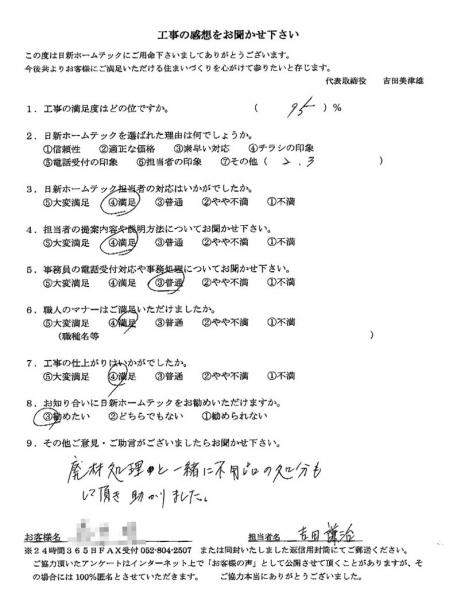 工事の感想をお聞かせ下さい
この度は日新ホームテックにご用命下さいましてありがとうございます。
今後共よりお客様にご満足いただける住まいづくりを心がけて参りたいと存じます。
代表取締役 吉田美津雄
1．工事の満足度はどの位ですか。 （ 95 ）％
2．日新ホームテックを選ばれた理由は何でしょうか。
①信頼性 ②適正な価格 ③素早い対応 ④チラシの印象
⑤電話受付の印象 ⑥担当者の印象 ⑦その他（ 2.3 ）
3．日新ホームテック担当者の対応はいかがでしたか。
⑤大変満足 ④満足 ③普通 ②やや不満 ①不満
4．担当者の提案内容や説明方法についてお聞かせ下さい。
⑤大変満足 ④満足 ③普通 ②やや不満 ①不満
5．事務員の電話受付対応や事務処理についてお聞かせ下さい。
⑤大変満足 ④満足 ③普通 ②やや不満 ①不満
6．職人のマナーはご満足いただけましたか。
⑤大変満足 ④満足 ③普通 ②やや不満 ①不満
（職種名等 ）
7．工事の仕上がりはいかがでしたか。
⑤大変満足 ④満足 ③普通 ②やや不満 ①不満
8．お知り合いに日新ホームテックをお勧めいただけますか。
③勧めたい ②どちらでもない ①勧められない
9．その他ご意見・ご助言がございましたらお聞かせ下さい。
廃材処理と一緒に不用品の処分も
して頂き助かりました。
お客様名 担当者名 吉田
※24時間365日FAX受付 052-804-2507 または同封いたしました返信用封筒にてご郵送ください。
ご協力頂いたアンケートはインターネット上で「お客様の声」として公開させて頂くことがありますが、そ
の場合には100%匿名とさせていただきます。 ご協力本当にありがとうございました。